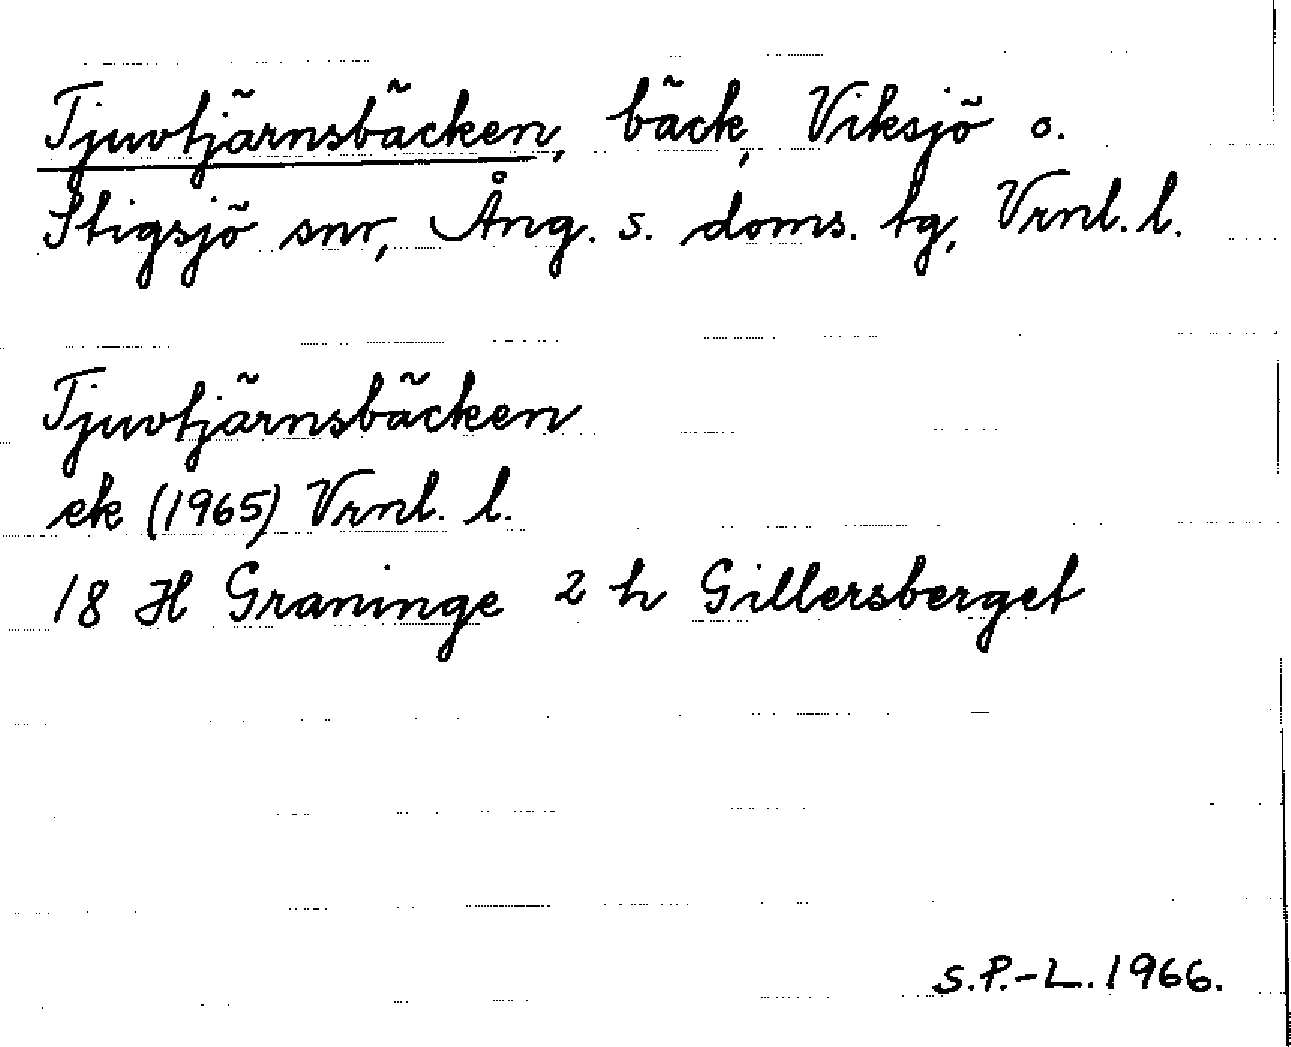 Tjuvtjärnsbäcken, bäck, Viksjö o.
Stigsjö snr, Ång. s. doms. tg, Vrnl. l.
Tjuvtjärnsbäcken
ek (1965) Vrnl. l.
18 H Graninge 2 h Gillersberget
S.P.-L. 1966.